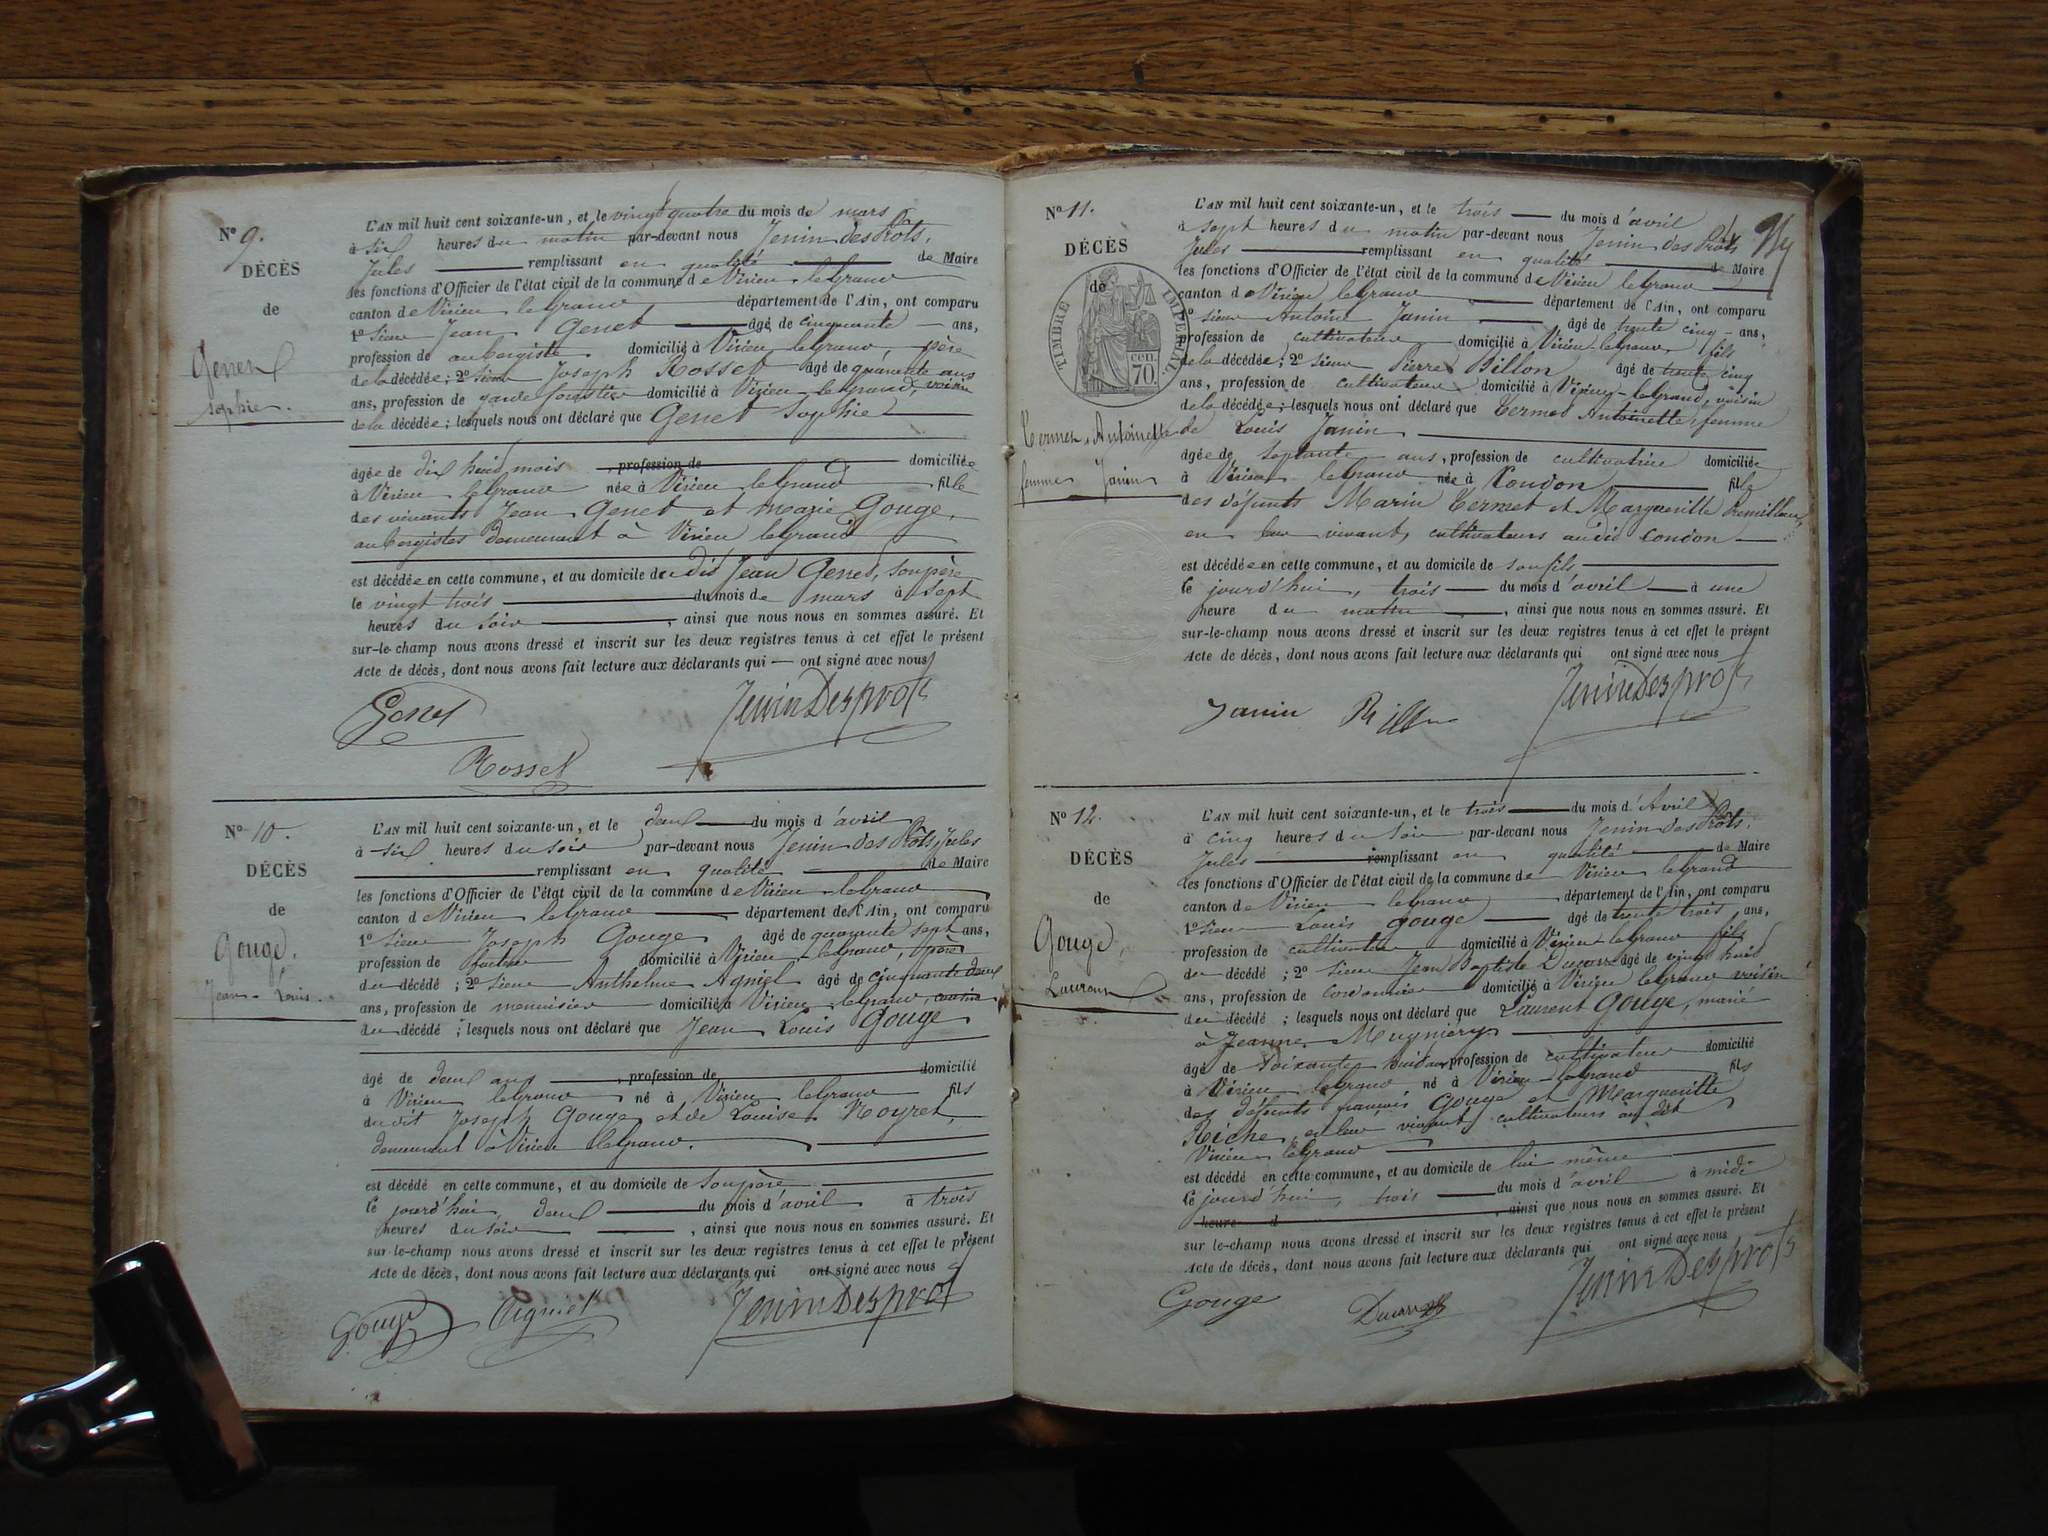 N° 9.
DÉCÈS
de
Genet
Sophie.
L'AN mil huit cent soixante-un, et le vingt quatre du mois de mars
à six heures du matin par-devant nous Jenin des Prôts,
Jules remplissant en qualité de Maire
les fonctions d'Officier de l'état civil de la commune de Virieu le Grand
canton de Virieu le Grand département de l'Ain, ont comparu
1° Sieur Jean Genet âgé de cinquante ans,
profession de aubergiste domicilié à Virieu le Grand, père
de la décédée; 2° Sieur Joseph Rosset âgé de quarante ans
ans, profession de garde forestier domicilié à Virieu le Grand, voisin
de la décédée; lesquels nous ont déclaré que Genet Sophie
âgée de dix huit mois, profession de domiciliée
à Virieu le Grand née à Virieu le Grand fille
des vivants Jean Genet et Marie Gouge,
aubergistes demeurant à Virieu le Grand
est décédée en cette commune, et au domicile du dit Jean Genet, son père
le vingt trois du mois de mars à sept
heures du soir, ainsi que nous nous en sommes assuré. Et
sur-le-champ nous avons dressé et inscrit sur les deux registres tenus à cet effet le présent
Acte de décès, dont nous avons fait lecture aux déclarants qui ont signé avec nous
Genet JeninDesprots
Rosset
N° 10.
DÉCÈS
de
Gouge.
Jean-Louis.
L'AN mil huit cent soixante-un, et le deux du mois d'avril
à six heures du soir par-devant nous Jenin des Prôts, Jules
remplissant en qualité de Maire
les fonctions d'Officier de l'état civil de la commune de Virieu le Grand
canton de Virieu le Grand département de l'Ain, ont comparu
1° Sieur Joseph Gouge âgé de quarante sept ans,
profession de facteur domicilié à Virieu le Grand, père
du décédé; 2° Sieur Anthelme Agniel âgé de cinquante deux
ans, profession de menuisier domicilié à Virieu le Grand, cousin
du décédé; lesquels nous ont déclaré que Jean Louis Gouge
âgé de deux ans, profession de domicilié
à Virieu le Grand né à Virieu le Grand fils
du dit Joseph Gouge et de Louise Noyret,
demeurant à Virieu le Grand.
est décédé en cette commune, et au domicile de son père
le jourd'hui, deux du mois d'avril à trois
heures du soir, ainsi que nous nous en sommes assuré. Et
sur-le-champ nous avons dressé et inscrit sur les deux registres tenus à cet effet le présent
Acte de décès, dont nous avons fait lecture aux déclarants qui ont signé avec nous
Gouge Agniel JeninDesprots
N° 11.
DÉCÈS
de
TIMBRE IMPÉRIAL.
70. cen.
Termet Antoinette
femme Janin
L'AN mil huit cent soixante-un, et le trois du mois d'avril
à sept heures du matin par-devant nous Jenin des Prôts
Jules remplissant en qualité de Maire
les fonctions d'Officier de l'état civil de la commune de Virieu le Grand
canton de Virieu le Grand département de l'Ain, ont comparu
1° sieur Antoine Janin âgé de trente cinq ans,
profession de cultivateur domicilié à Virieu le Grand, fils
de la décédée; 2° sieur Pierre Billon âgé de trente cinq
ans, profession de cultivateur domicilié à Virieu-le Grand, voisin
de la décédée; lesquels nous ont déclaré que Termet Antoinette, femme
de Louis Janin
âgée de septante ans, profession de cultivatrice domiciliée
à Virieu le Grand née à Condon fille
des défunts Marin Termet et Marguerite
en leur vivant, cultivateurs audit Condon
est décédée en cette commune, et au domicile de son fils
le jourd'hui, trois du mois d'avril à une
heure du matin, ainsi que nous nous en sommes assuré. Et
sur-le-champ nous avons dressé et inscrit sur les deux registres tenus à cet effet le présent
Acte de décès, dont nous avons fait lecture aux déclarants qui ont signé avec nous
Janin Billon JeninDesprots
N° 12.
DÉCÈS
de
Gouge,
Laurent
L'AN mil huit cent soixante-un, et le trois du mois d'Avril
à cinq heures du soir par-devant nous Jenin des Prôts.
Jules remplissant en qualité de Maire
les fonctions d'Officier de l'état civil de la commune de Virieu le Grand
canton de Virieu le Grand département de l'Ain, ont comparu
1° Sieur Louis Gouge âgé de trente trois ans,
profession de cultivateur domicilié à Virieu le Grand fils
du décédé; 2° sieur Jean Baptiste âgé de vingt huit
ans, profession de cordonnier domicilié à Virieu le Grand voisin
du décédé; lesquels nous ont déclaré que Laurent Gouge, marié
à Jeanne Mugniery
âgé de soixante huit ans profession de cultivateur domicilié
à Virieu le Grand né à Virieu le Grand fils
des défunts françois Gouge et Marguerite
Riche, en leur vivant, cultivateurs au dit
Virieu le Grand
est décédé en cette commune, et au domicile de lui même
le jourd'hui, trois du mois d'avril à midi
heure d, ainsi que nous nous en sommes assuré. Et
sur le-champ nous avons dressé et inscrit sur les deux registres tenus à cet effet le présent
Acte de décès, dont nous avons fait lecture aux déclarants qui ont signé avec nous
Gouge JeninDesprots